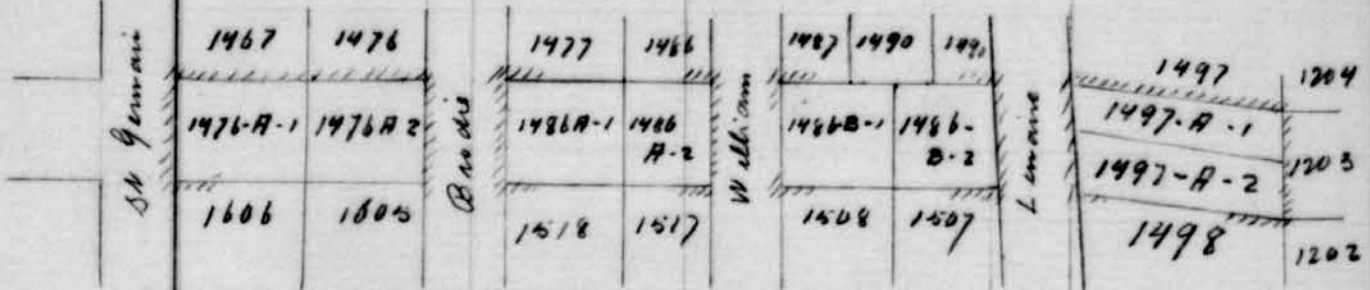 St Germain
1467 1476
1476-A-1 1476A2
1606 1605
Brodie
1477 1486
1486A-1 1486
A-2
1518 1517
William
1487 1490 1491
1486-B-1 1486-
B-2
1508 1507
Lemaire
1497
1497-A-1
1497-A-2
1498
1204
1203
1202